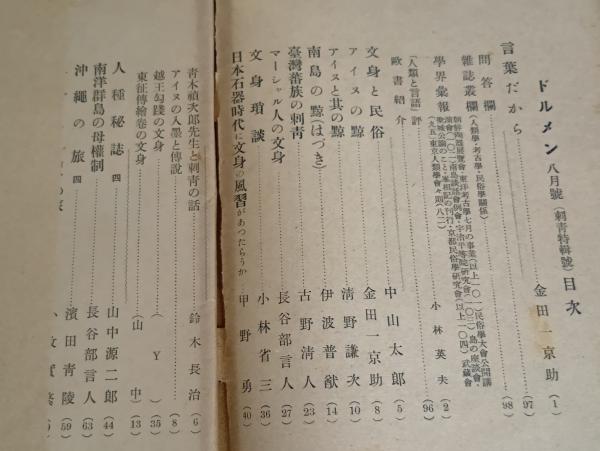 ドルメン 八月號 (刺青特輯號) 目次
言葉だから 金田一京助 (1)
問答欄 (人類學・考古學・民俗學關係) (97)
雜誌叢欄 (98)
學界彙報
「人類と言語」評 小林英夫 (2)
歐書紹介 (96)
文身と民俗 中山太郎 (5)
アイヌの黥 金田一京助 (8)
アイヌと其の黥 清野謙次 (10)
南島の黥(はづき) 伊波普猷 (14)
臺灣蕃族の刺青 古野清人 (23)
マーシャル人の文身 長谷部言人 (27)
文身瑣談 小林省三 (36)
日本石器時代に文身の風習があつたらうか 甲野勇 (40)
青木禎次郎先生と刺青の話 鈴木長治 (6)
アイヌの入墨と傳說 (8)
越王勾踐の文身 (Y) (35)
東征傳繪卷の文身 (山中) (13)
人種秘誌 四 山中源二郎 (44)
南洋群島の母權制 長谷部言人 (63)
沖繩の旅 四 濱田青陵 (59)